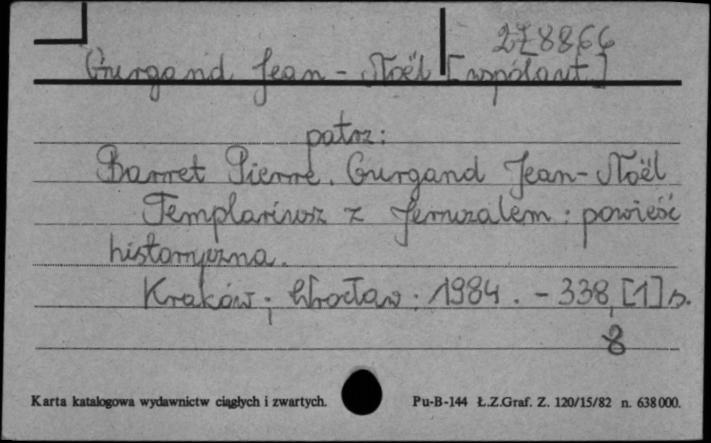 278866
Gurgand Jean-Noël [współaut.]
patrz:
Barret Pierre, Gurgand Jean-Noël
Templariusz z Jeruzalem : powieść
historyczna.
Kraków ; Wrocław : 1984. - 338, [1] s.
8
Karta katalogowa wydawnictw ciągłych i zwartych. Pu-B-144 Ł.Z.Graf. Z. 120/15/82 n. 638000.